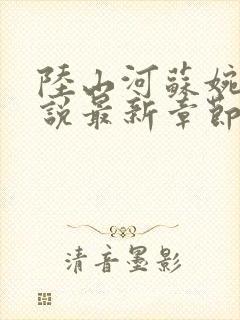 陸山河蘇婉
說最新章節
清音墨影